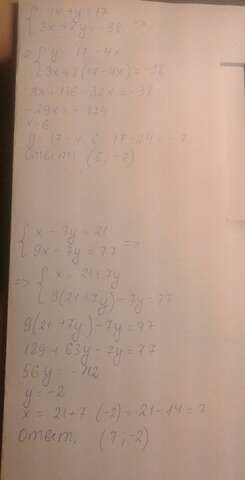 4x + y = 17
3x + 8y = -38 =>
=> y = 17 - 4x
3x + 8(17 - 4x) = -38
3x + 136 - 32x = -38
-29x = -174
x = 6
y = 17 - 4·6 = 17 - 24 = -7
Ответ: (6, -7)
x - 7y = 21
9x - 7y = 77 =>
=> x = 21 + 7y
9(21 + 7y) - 7y = 77
9(21 + 7y) - 7y = 77
189 + 63y - 7y = 77
56y = -112
y = -2
x = 21 + 7·(-2) = 21 - 14 = 7
Ответ. (7, -2)